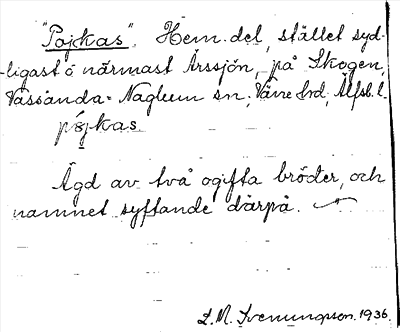 "Pojkas". Hem.del, stället syd-
ligast ö närmast Årssjön, på Skogen,
Vassända-Naglum sn, Väne hd, Älfsb. l.
pójkas
Ägd av två ogifta bröder, och
namnet syftande därpå.
L. M. Svenungsson. 1936.